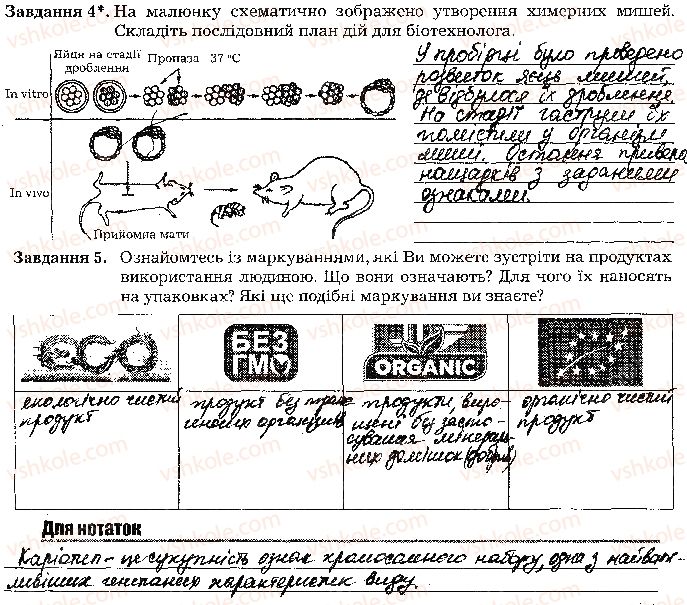 Завдання 4*. На малюнку схематично зображено утворення химерних мишей.
Складіть послідовний план дій для біотехнолога.
Яйця на стадії
дроблення
Проназа 37 °C
In vitro
In vivo
Прийомна мати
У пробірці було проведено
розвиток яєць мишей,
де відбулося їх дроблення.
На стадії гаструли їх
помістили у організм
миші. Остання привела
нащадків з заданими
ознаками.
Завдання 5. Ознайомтесь із маркуваннями, які Ви можете зустріти на продуктах
використання людиною. Що вони означають? Для чого їх наносять
на упаковках? Які ще подібні маркування ви знаєте?
БЕЗ
ГМО
ORGANIC
екологічно чистий
продукт
продукт без транс
генних організмів
продукти, виро-
щені без засто-
сування мінераль-
них домішок (добрив)
органічно чистий
продукт
Для нотаток
Каріотип - це сукупність ознак хромосомного набору, одна з найваж-
ливіших генетичних характеристик виду.
vshkole.com